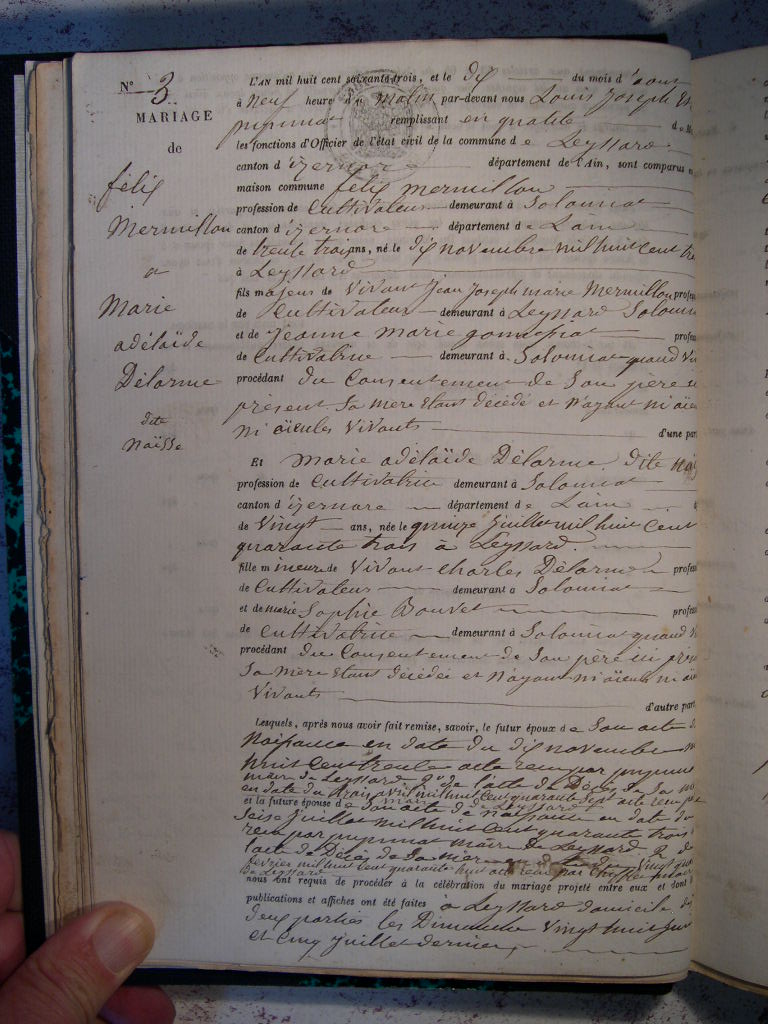 N° 3
MARIAGE
de
félix
Mermillon
a
Marie
adélaïde
Délorme
dite
naïsse
L'AN mil huit cent soixante trois, et le dix du mois d'aout
à neuf heure du matin par-devant nous Louis Joseph
remplissant en qualité de
les fonctions d'Officier de l'état civil de la commune de Leyssard
canton d'izernore département de l'Ain, sont comparus
maison commune félix mermillon
profession de Cultivateur demeurant à Solomiat
canton d'izernore département de L'ain
de trente trois ans, né le dix novembre mil huit cent
à Leyssard
fils majeur de vivant Jean Joseph marie Mermillon profes
de Cultivateur demeurant à Leyssard
et de Jeanne Marie profes
de Cultivatrice demeurant à Solomiat quand
procédant du Consentement de Son père
présent Sa mere étant décédé et n'ayant ni
ni aïeules vivants d'une part
Et Marie adélaïde Délorme dite
profession de Cultivatrice demeurant à Solomiat
canton d'izernore département de L'ain
de vingt ans, née le quinze juillet mil huit Cent
quarante trois à Leyssard.
fille mineure de vivant Charles Délorme profes
de Cultivateur demeurant à Solomiat
et de marie Sophie Bouvet profes
de Cultivatrice demeurant à Solomiat quand
procédant du Consentement de Son père ici
Sa mere étant décédée et n'ayant ni aïeuls ni
vivants d'autre part
Lesquels, après nous avoir fait remise, savoir, le futur époux de Son acte de
naissance en date du dix novembre
huit Cent trente acte reçu par
maire de Leyssard de l'acte de Décès de Sa
en date du trois avril mil huit Cent quarante Sept acte reçu
et la future épouse de Son acte de naissance en date du
Seize juillet mil huit Cent quarante trois
reçu par maire de Leyssard
l'acte de Décès de Sa mere en date du vingt
février mil huit Cent quarante huit acte reçu par
de Leyssard
nous ont requis de procéder à la célébration du mariage projeté entre eux et dont
publications et affiches ont été faites à Leyssard domicile des
deux parties les Dimanche vingt huit
et Cinq juillet dernier